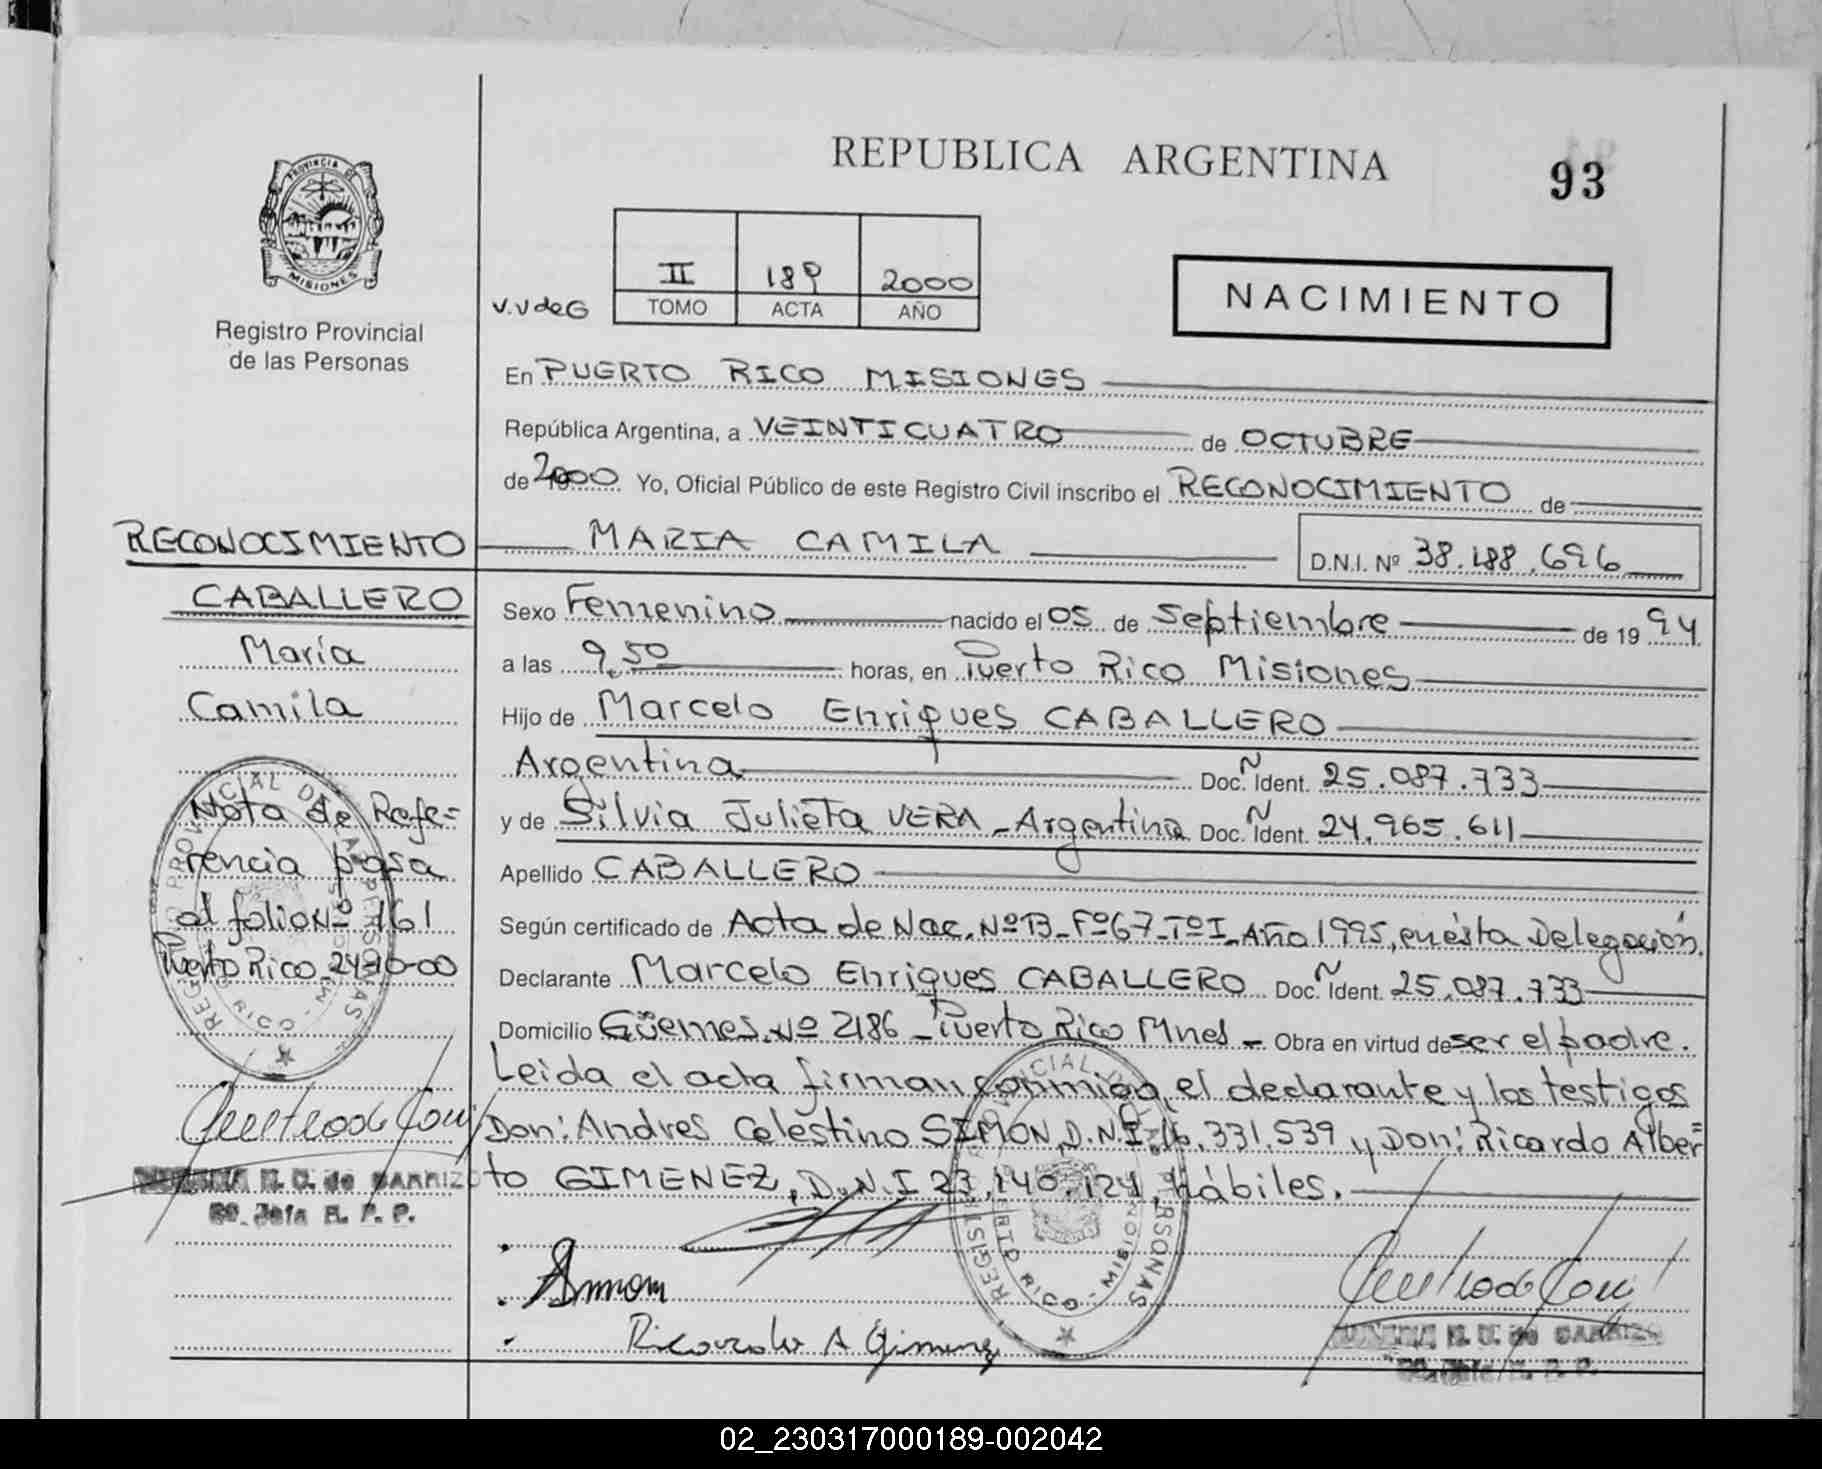 REPUBLICA ARGENTINA
93
PROVINCIA DE
MISIONES
Registro Provincial
de las Personas
V.V de G
II 189 2000
TOMO ACTA AÑO
NACIMIENTO
En PUERTO RICO MISIONES
República Argentina, a VEINTICUATRO de OCTUBRE
de 2000 Yo, Oficial Público de este Registro Civil inscribo el RECONOCIMIENTO de
MARIA CAMILA D.N.I. Nº 38.188.696
RECONOCIMIENTO
CABALLERO
María
Camila
Nota de Refe=
rencia pasa
al folio Nº 161
Puerto Rico 24-10-00
Sexo Femenino nacido el 05 de Septiembre de 1994
a las 9,50 horas, en Puerto Rico Misiones
Hijo de Marcelo Enriques CABALLERO
Argentina Doc. Ñ Ident. 25.087.733
y de Silvia Julieta VERA - Argentina Doc. Ñ Ident. 24.965.611
Apellido CABALLERO
Según certificado de Acta de Nac. Nº 13 - Fº 67 - Tº I - Año 1995, en ésta Delegación.
Declarante Marcelo Enriques CABALLERO Doc. Ñ Ident. 25.087.733
Domicilio Güemes. Nº 2186 - Puerto Rico Mnes - Obra en virtud de ser el padre.
Leida el acta firman conmigo, el declarante y los testigos
Don: Andres Celestino SIMON, D.N.I. 16.331.539 y Don: Ricardo Alber=
to GIMENEZ, D.N.I 23.140.124, Hábiles.
N. C. de CARRIZO
R. P. P.
REGISTRO PROVINCIAL DE LAS PERSONAS
PUERTO RICO - MISIONES
Simon
Ricardo A Gimenez
02_230317000189-002042